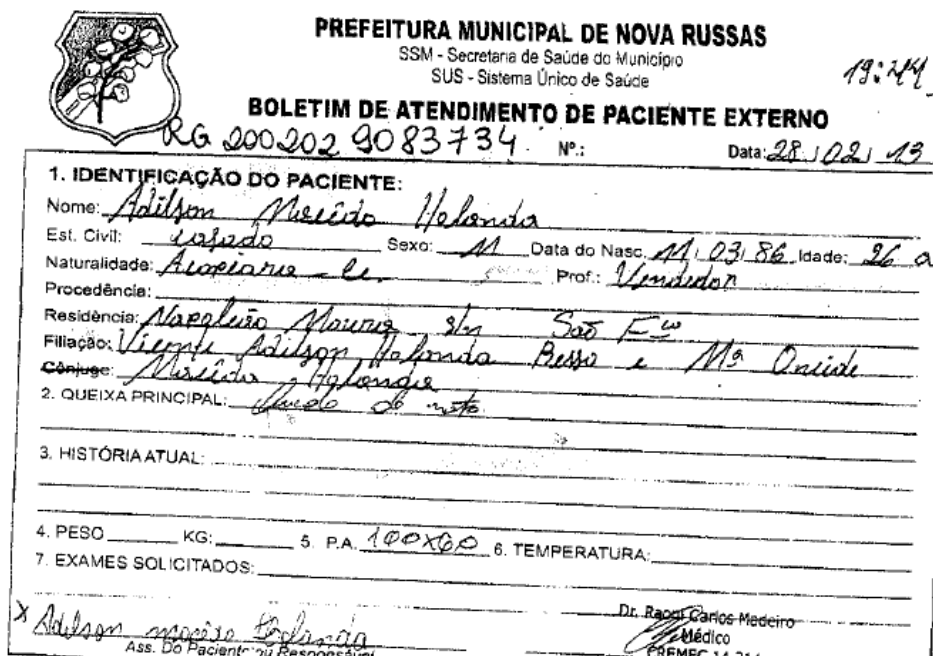 PREFEITURA MUNICIPAL DE NOVA RUSSAS
SSM - Secretaria de Saúde do Município
SUS - Sistema Único de Saúde
19:44
BOLETIM DE ATENDIMENTO DE PACIENTE EXTERNO
RG 2002029083734 Nº.: Data: 28/02/13
1. IDENTIFICAÇÃO DO PACIENTE:
Nome: Adilson Macêdo Holanda
Est. Civil: casado Sexo: M Data do Nasc. 11/03/86 Idade: 26 a
Naturalidade: Acopiara - Ce Prof.: Vendedor
Procedência:
Residência: Napoleão s/n São Fco
Filiação: Vicente Adilson Holanda Bessa e Mª Oneide
Cônjuge: Macêdo Holanda
2. QUEIXA PRINCIPAL: Queda de moto
3. HISTÓRIA ATUAL:
4. PESO KG: 5. P.A. 100X60 6. TEMPERATURA:
7. EXAMES SOLICITADOS:
X Adilson macêdo Holanda
Ass. Do Paciente ou Responsável
Dr. Carlos Medeiro
Médico
CREMEC